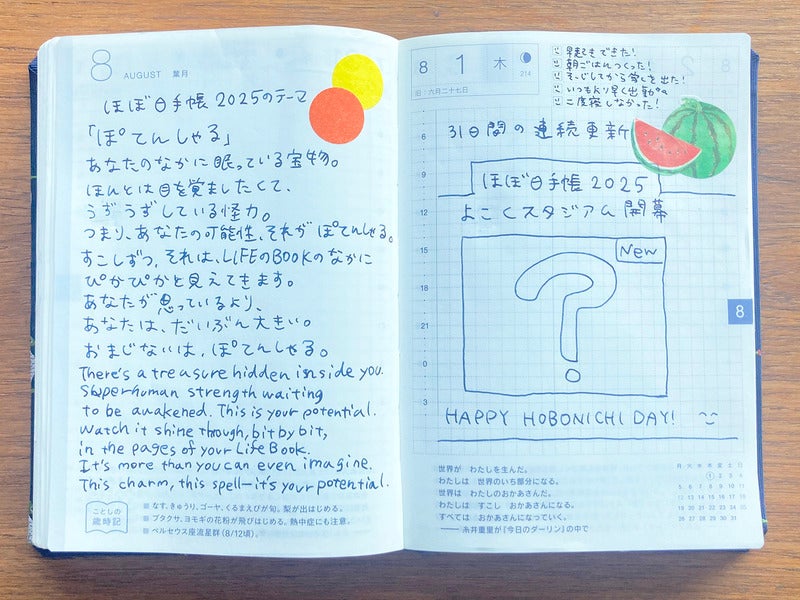 8 AUGUST 葉月
ほぼ日手帳 2025のテーマ
「ぽてんしゃる」
あなたのなかに眠っている宝物。
ほんとは目を覚ましたくて、
うずうずしている怪力。
つまり、あなたの可能性、それが ぽてんしゃる。
すこしずつ、それは、LIFEのBOOKのなかに
ぴかぴかと見えてきます。
あなたが思っているより、
あなたは、だいぶん大きい。
おまじないは、ぽてんしゃる。
There's a treasure hidden inside you.
Superhuman strength waiting
to be awakened. This is your potential.
Watch it shine through, bit by bit,
in the pages of your Life Book.
It's more than you can even imagine.
This charm, this spell—it's your potential.
ことしの
歳時記
なす、きゅうり、ゴーヤ、くるまえびが旬。梨が出はじめる。
ブタクサ、ヨモギの花粉が飛びはじめる。熱中症にも注意。
ペルセウス座流星群(8/12頃)。
8 1 木
214
旧:六月二十七日
早起きできた!
朝ごはんつくった!
そうじしてから家を出た!
いつもより早く出勤
二度寝しなかった!
31日間の連続更新
ほぼ日手帳 2025
よこくスタジアム開幕
New
?
HAPPY HOBONICHI DAY!
6
9
12
15
18
21
0
3
8
世界が わたしを生んだ。
わたしは 世界のいち部分になる。
世界は わたしのおかあさんだ。
わたしは すこし おかあさんになる。
すべては おかあさんになっていく。
——糸井重里が『今日のダーリン』の中で
月 火 水 木 金 土 日
1 2 3 4
5 6 7 8 9 10 11
12 13 14 15 16 17 18
19 20 21 22 23 24 25
26 27 28 29 30 31